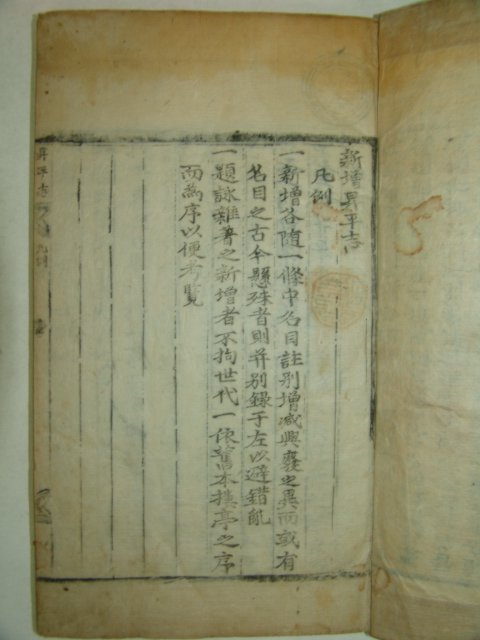 新增昇平志
凡例
一新增各隨一條中名目註别增减興廢之異而或有
名目之古今懸殊者則并别錄于左以避錯亂
一題詠雜著之新增者不拘世代一依舊本樓亭之序
而爲序以便考覽
昇平志